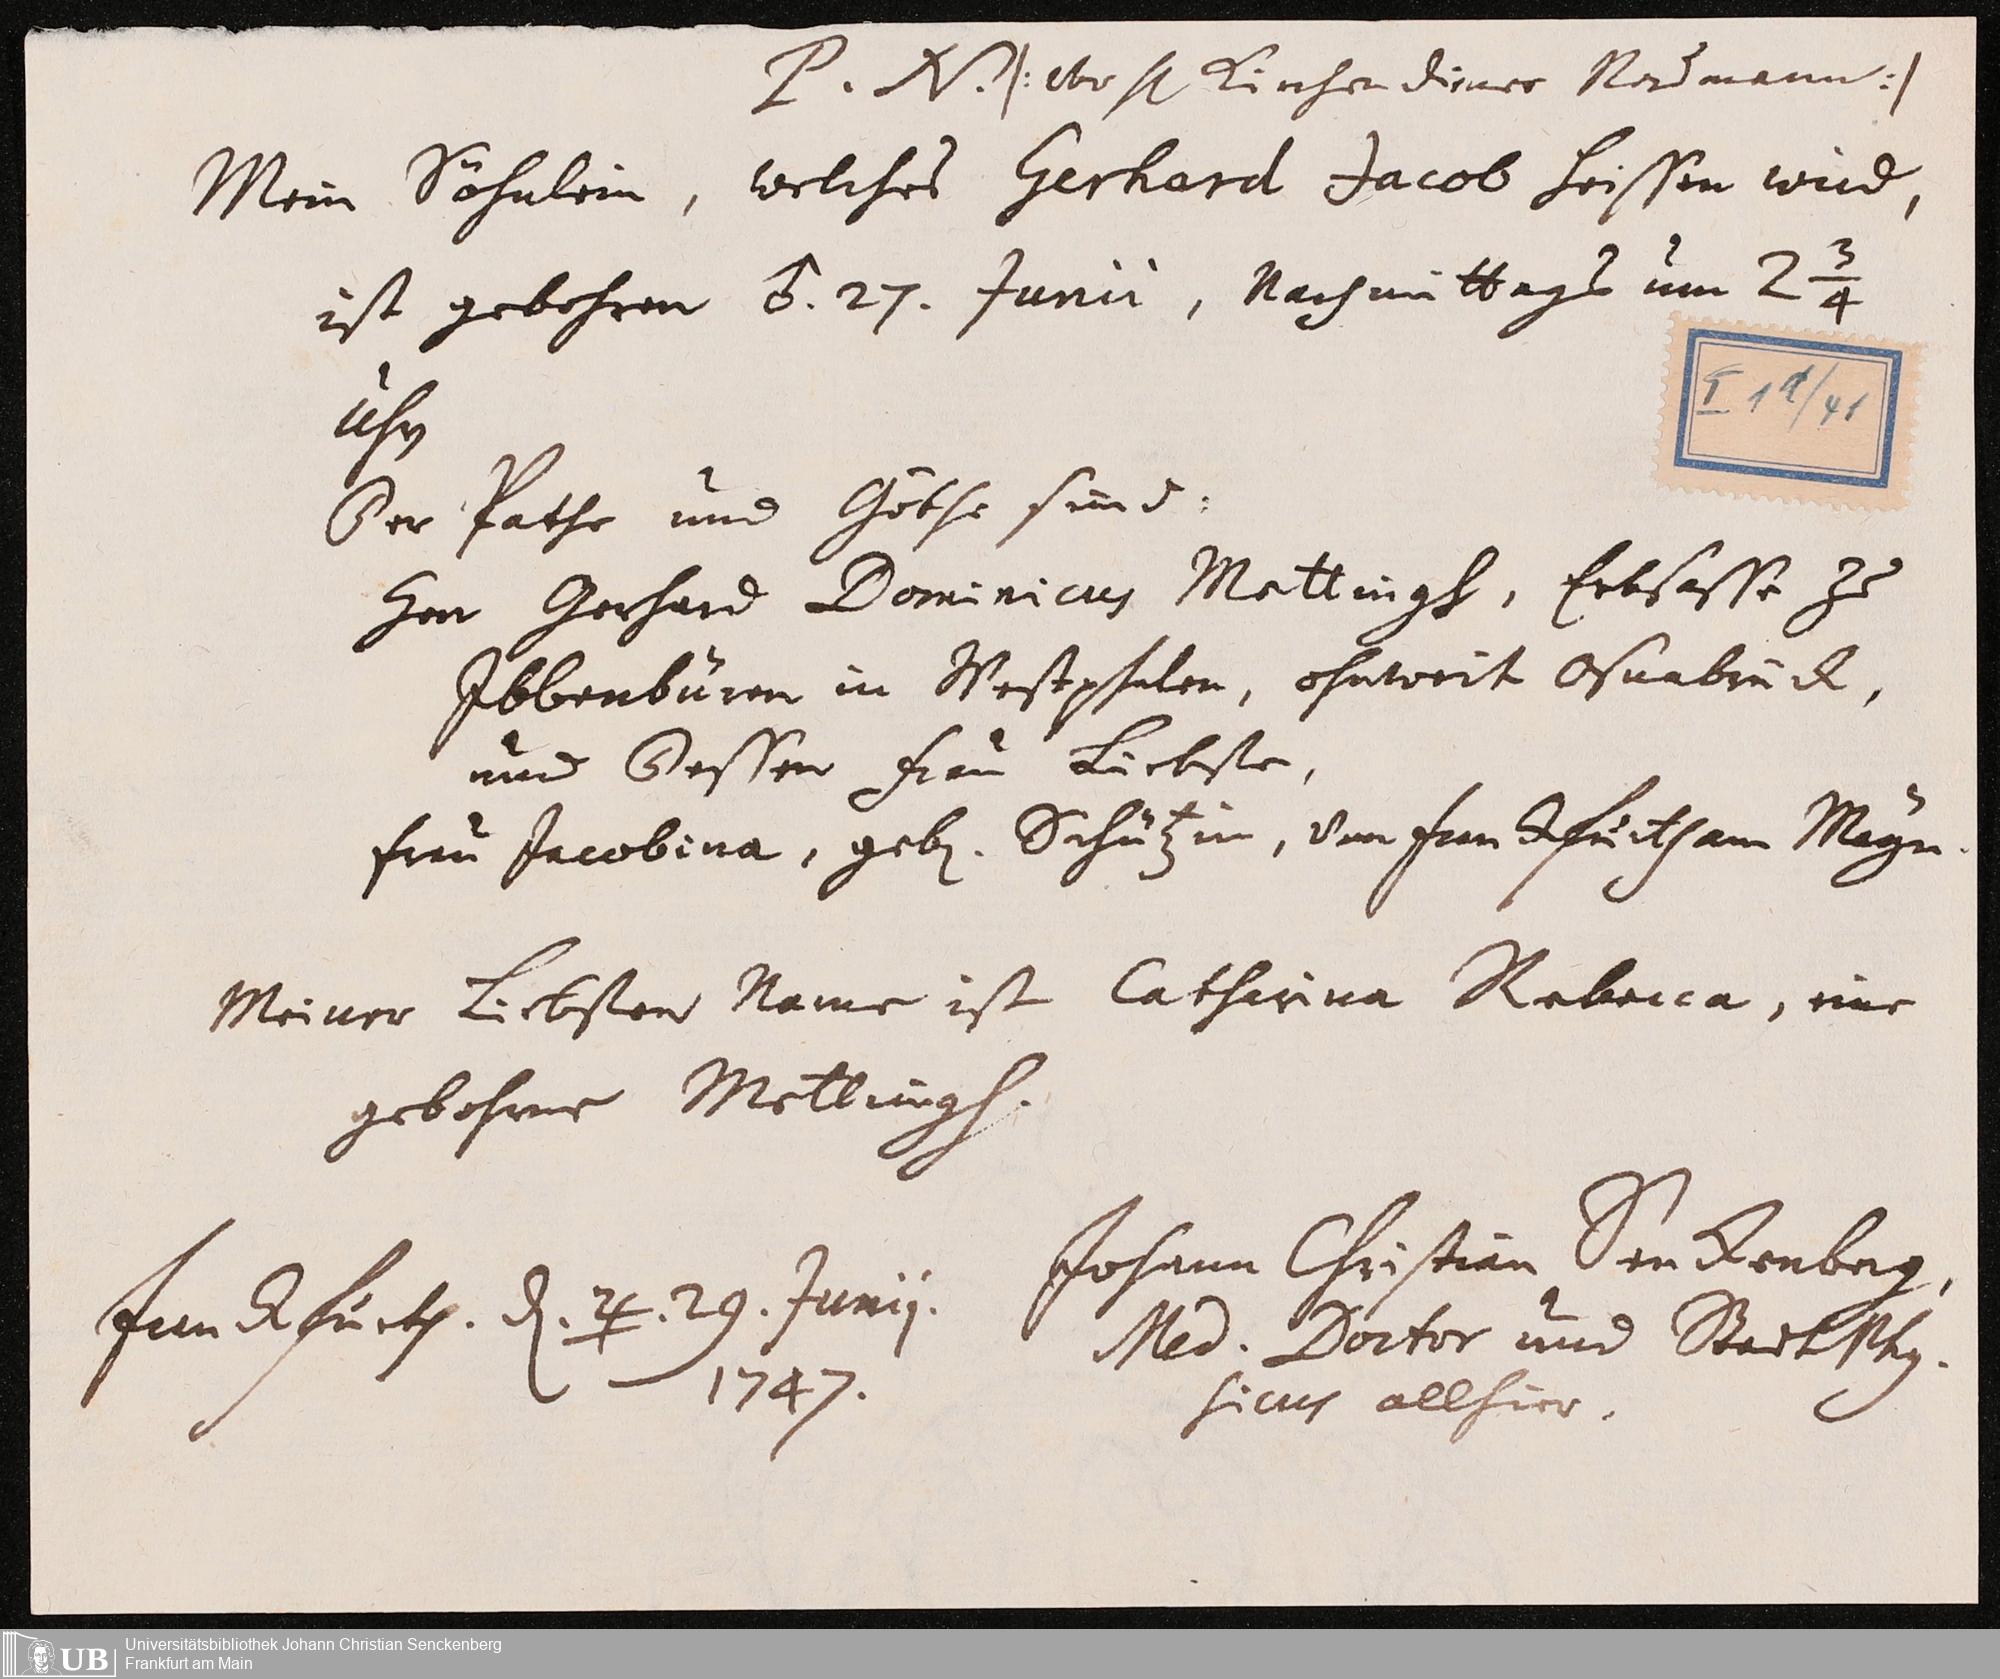 P. N. /: Kirchendiener :/
Mein Söhnlein, welches Gerhard Jacob heissen wird,
ist gebohren ♂. 27. Junii, Nachmittags um 2 3/4
Uhr
Der Pathe und Göthe sind:
Herr Gerhard Dominicus Mettingh, Erbsasse zu
Ibbenbüren in Westphalen, ohnweit Osnabrück,
und dessen Frau Liebste,
Frau Jacobina, geb. Schützin, von Franckfurth am Mayn.
Meiner Liebsten Name ist Catharina Rebecca, eine
gebohrne Mettingh.
Franckfurth. d. ♃. 29. Junij.
1747.
Johann Christian Senckenberg,
Med. Doctor und Stadt Phy-
sicus allhier.
Universitätsbibliothek Johann Christian Senckenberg
Frankfurt am Main
UB